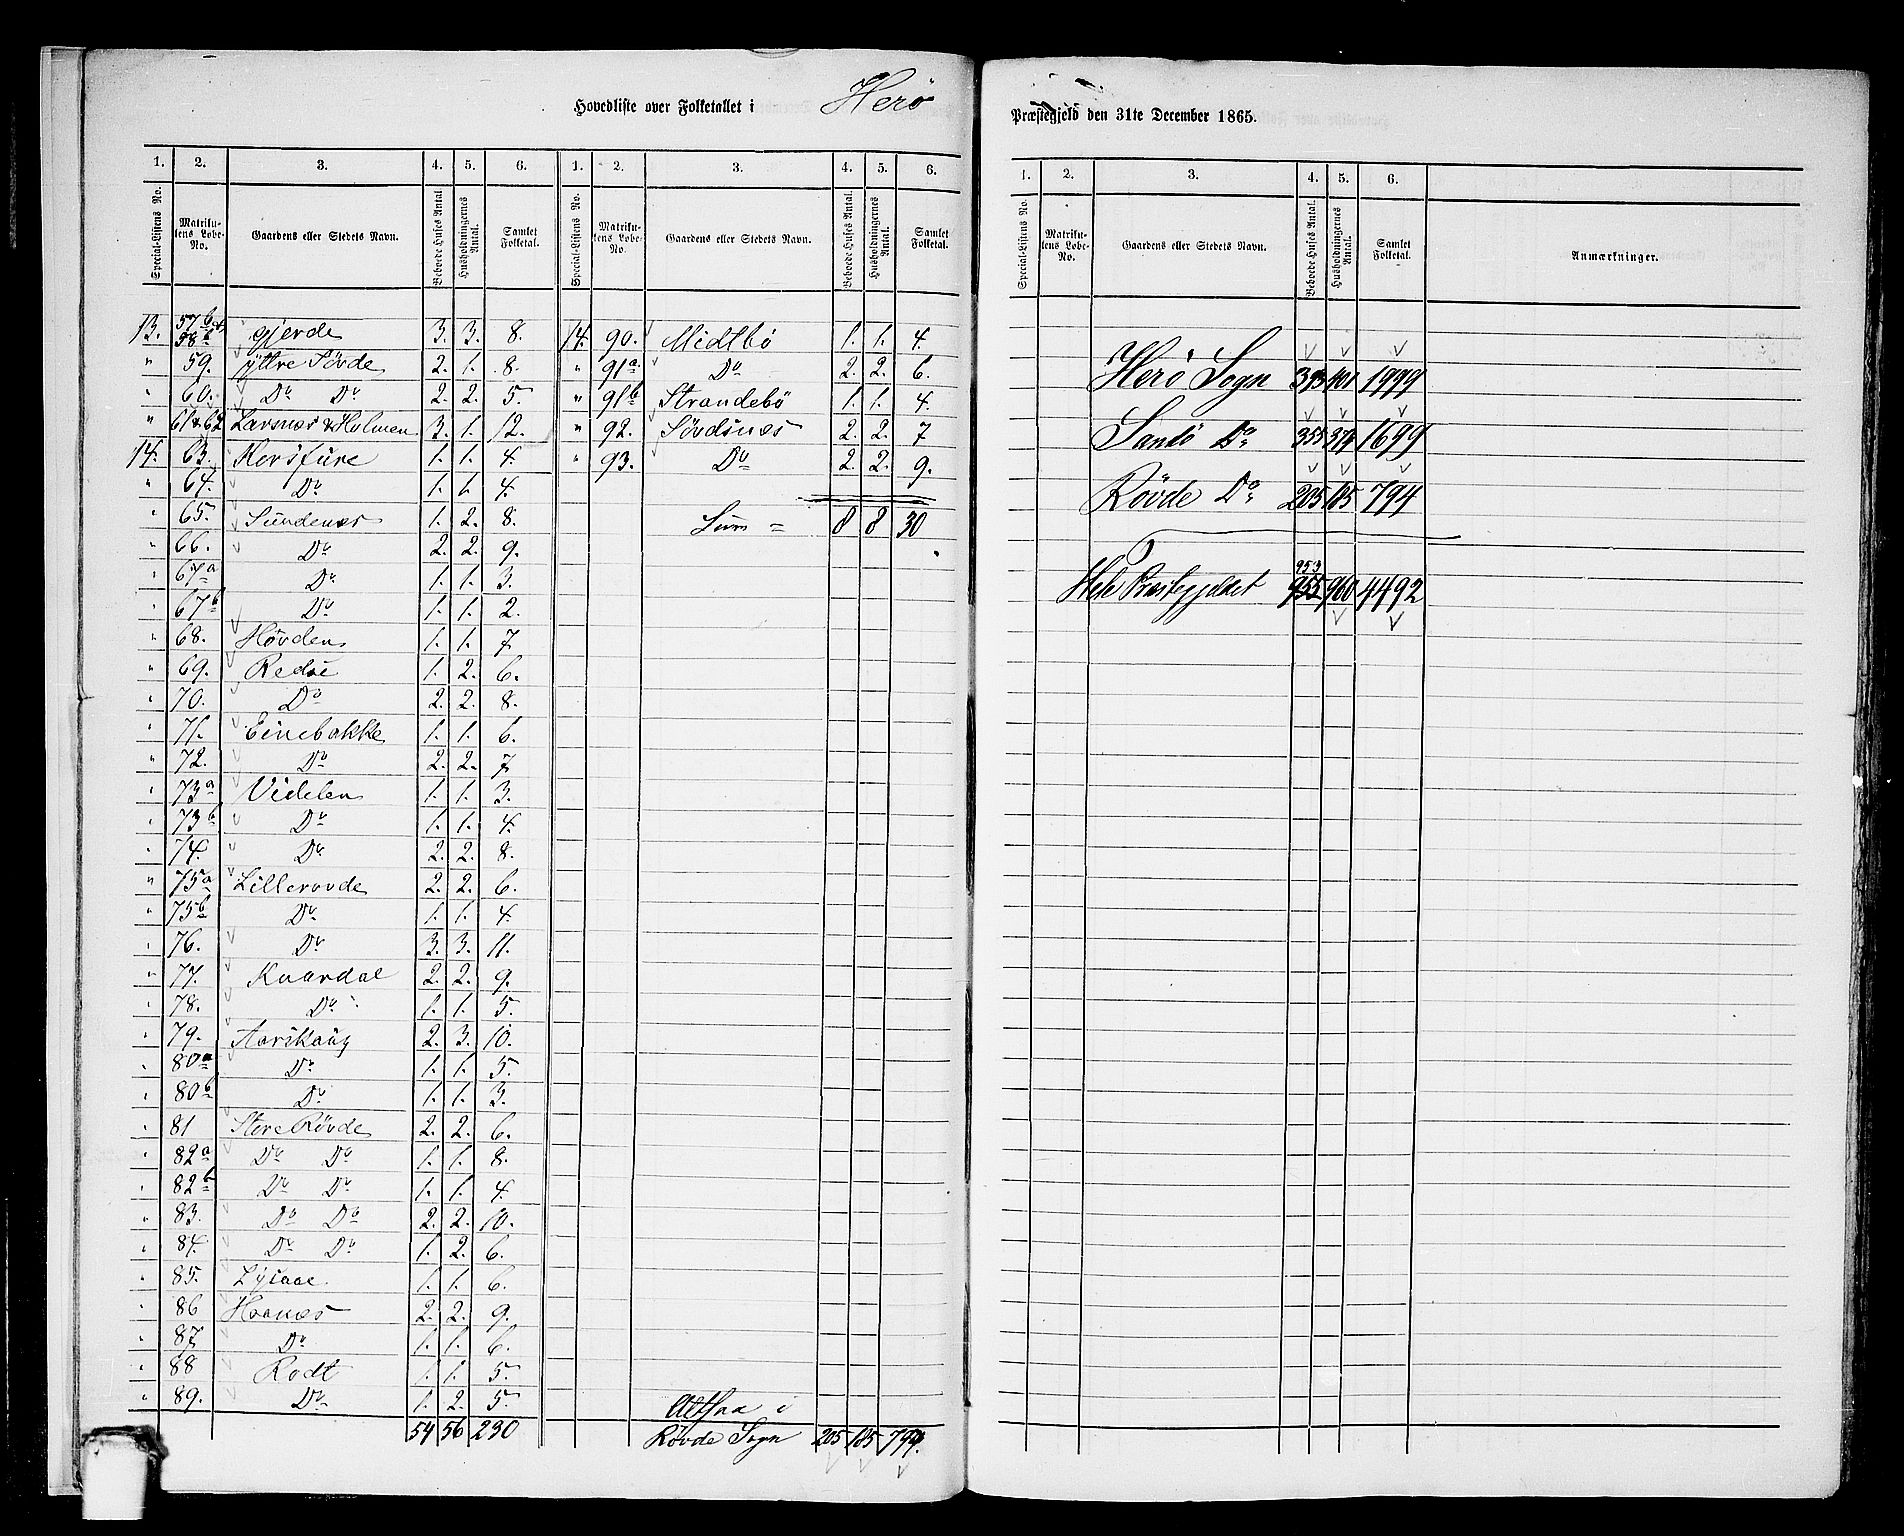 Hovedliste over Folketallet i Herö Præstegjeld den 31te December 1865.
1. 2. 3. 4. 5. 6. 1. 2. 3. 4. 5. 6.
Special-Listens No. Matrikulens Løbe-No. Gaardens eller Stedets Navn. Beboede Huses Antal. Husholdningernes Antal. Samlet Folketal. Special-Listens No. Matrikulens Løbe-No. Gaardens eller Stedets Navn. Beboede Huses Antal. Husholdningernes Antal. Samlet Folketal.
13. 57b 58b gjerde 3. 3. 8. 14. 90. Midtbö 1. 1. 4.
" 59. yttre Sövde 2. 1. 8. " 91a Do 2. 2. 6.
" 60. Do Do 2. 2. 5. " 91b Strandebö 1. 1. 4.
" 61 & 62 Larsnes & Holmen 3. 1. 12. " 92. Sövdsnes 2. 2. 7
14. 63. Korsfure 1. 1. 4. " 93. Do 2. 2. 9.
" 64. Do 1. 1. 4.
" 65. Sundenes 1. 2. 8. Sum = 8 8 30
" 66. Do 2. 2. 9.
" 67a Do 1. 1. 3.
" 67b Do 1. 1. 2.
" 68. Hövden 1. 1. 7
" 69. Redse 1. 2. 6.
" 70. Do 2. 2. 8.
" 71. Einebakke 1. 1. 6.
" 72. Do 2. 2. 7.
" 73a Videlen 1. 1. 3.
" 73b Do 1. 1. 4.
" 74. Do 2. 2. 8.
" 75a Lillerovde 2. 2. 6.
" 75b Do 1. 1. 4.
" 76. Do 3. 3. 11.
" 77. Kvardal 2. 2. 9.
" 78. Do 1. 1. 5.
" 79. Aarskaug 2. 3. 10.
" 80a Do 1. 1. 5.
" 80b Do 1. 1. 3.
" 81 Store Rövde 2. 2. 6.
" 82a Do Do 1. 1. 8.
" 82b Do Do 1. 1. 4.
" 83. Do Do 2. 2. 10.
" 84. Do Do 1. 2. 6.
" 85. Lysaae 1. 1. 6.
" 86 Haanes 2. 2. 9.
" 87 Do 1. 1. 6.
" 88 Rodt 1. 1. 5.
" 89. Do 1. 2. 5. Altsaa i
54 56 230 Rövde Sogn 205 185 794.
1. 2. 3. 4. 5. 6.
Special-Listens No. Matrikulens Løbe-No. Gaardens eller Stedets Navn. Beboede Huses Antal. Husholdningernes Antal. Samlet Folketal. Anmærkninger.
Herö Sogn 393 401 1999
Sandö Do 355 374 1699
Rövde Do 205 185 794
953
Hele Præstegjeldet 955 960 4492